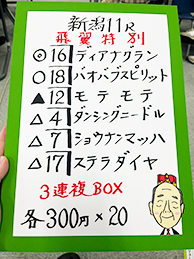 新潟11R
飛翼特別
◎16 ディアナグラン
○18 バオバブスピリット
▲12 モテモテ
△4 ダンシングニードル
△7 ショウナンマッハ
△17 ステラダイヤ
3連複BOX
各300円×20